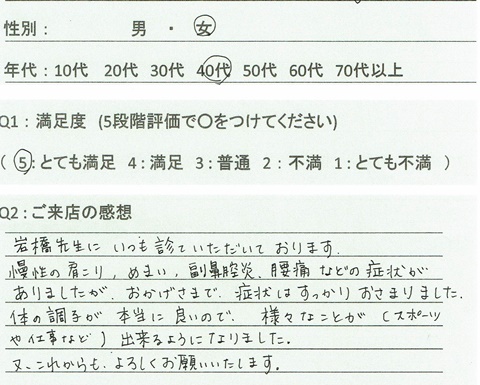 性別： 男 ・ 女
年代：10代 20代 30代 40代 50代 60代 70代以上
Q1：満足度 (5段階評価で〇をつけてください)
( 5：とても満足 4：満足 3：普通 2：不満 1：とても不満 )
Q2：ご来店の感想
岩橋先生に いつも診ていただいて おります.
慢性の肩こり, めまい, 副鼻腔炎, 腰痛 などの 症状が
ありましたが, おかげさまで, 症状は すっかり おさまりました.
体の調子が 本当に 良いので, 様々なことが (スポーツ
や仕事など) 出来るようになりました.
又、これからも、よろしくお願いいたします.